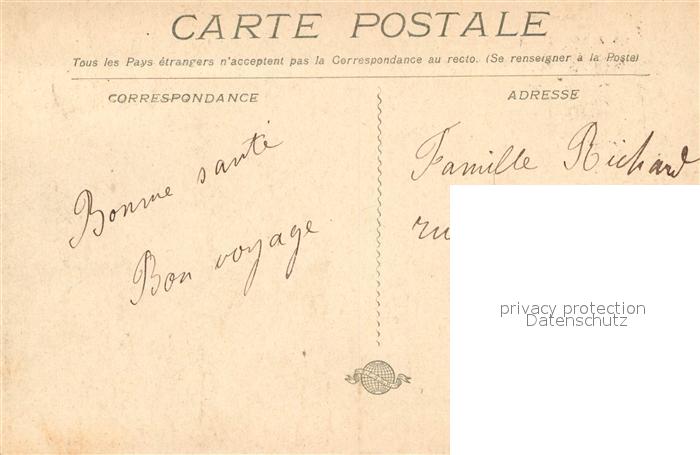 CARTE POSTALE
Tous les Pays étrangers n'acceptent pas la Correspondance au recto. (Se renseigner à la Poste)
CORRESPONDANCE
ADRESSE
Bonne santé
Bon voyage
Famille Richard
privacy protection
Datenschutz